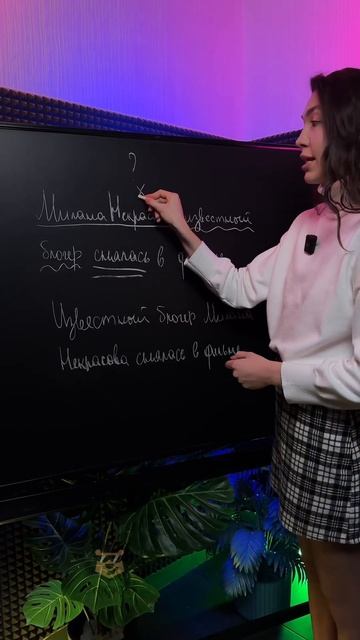 ?
х
Милана Некрас известный
блогер снялась в ф
Известный блогер Милана
Некрасова снялась в фильме